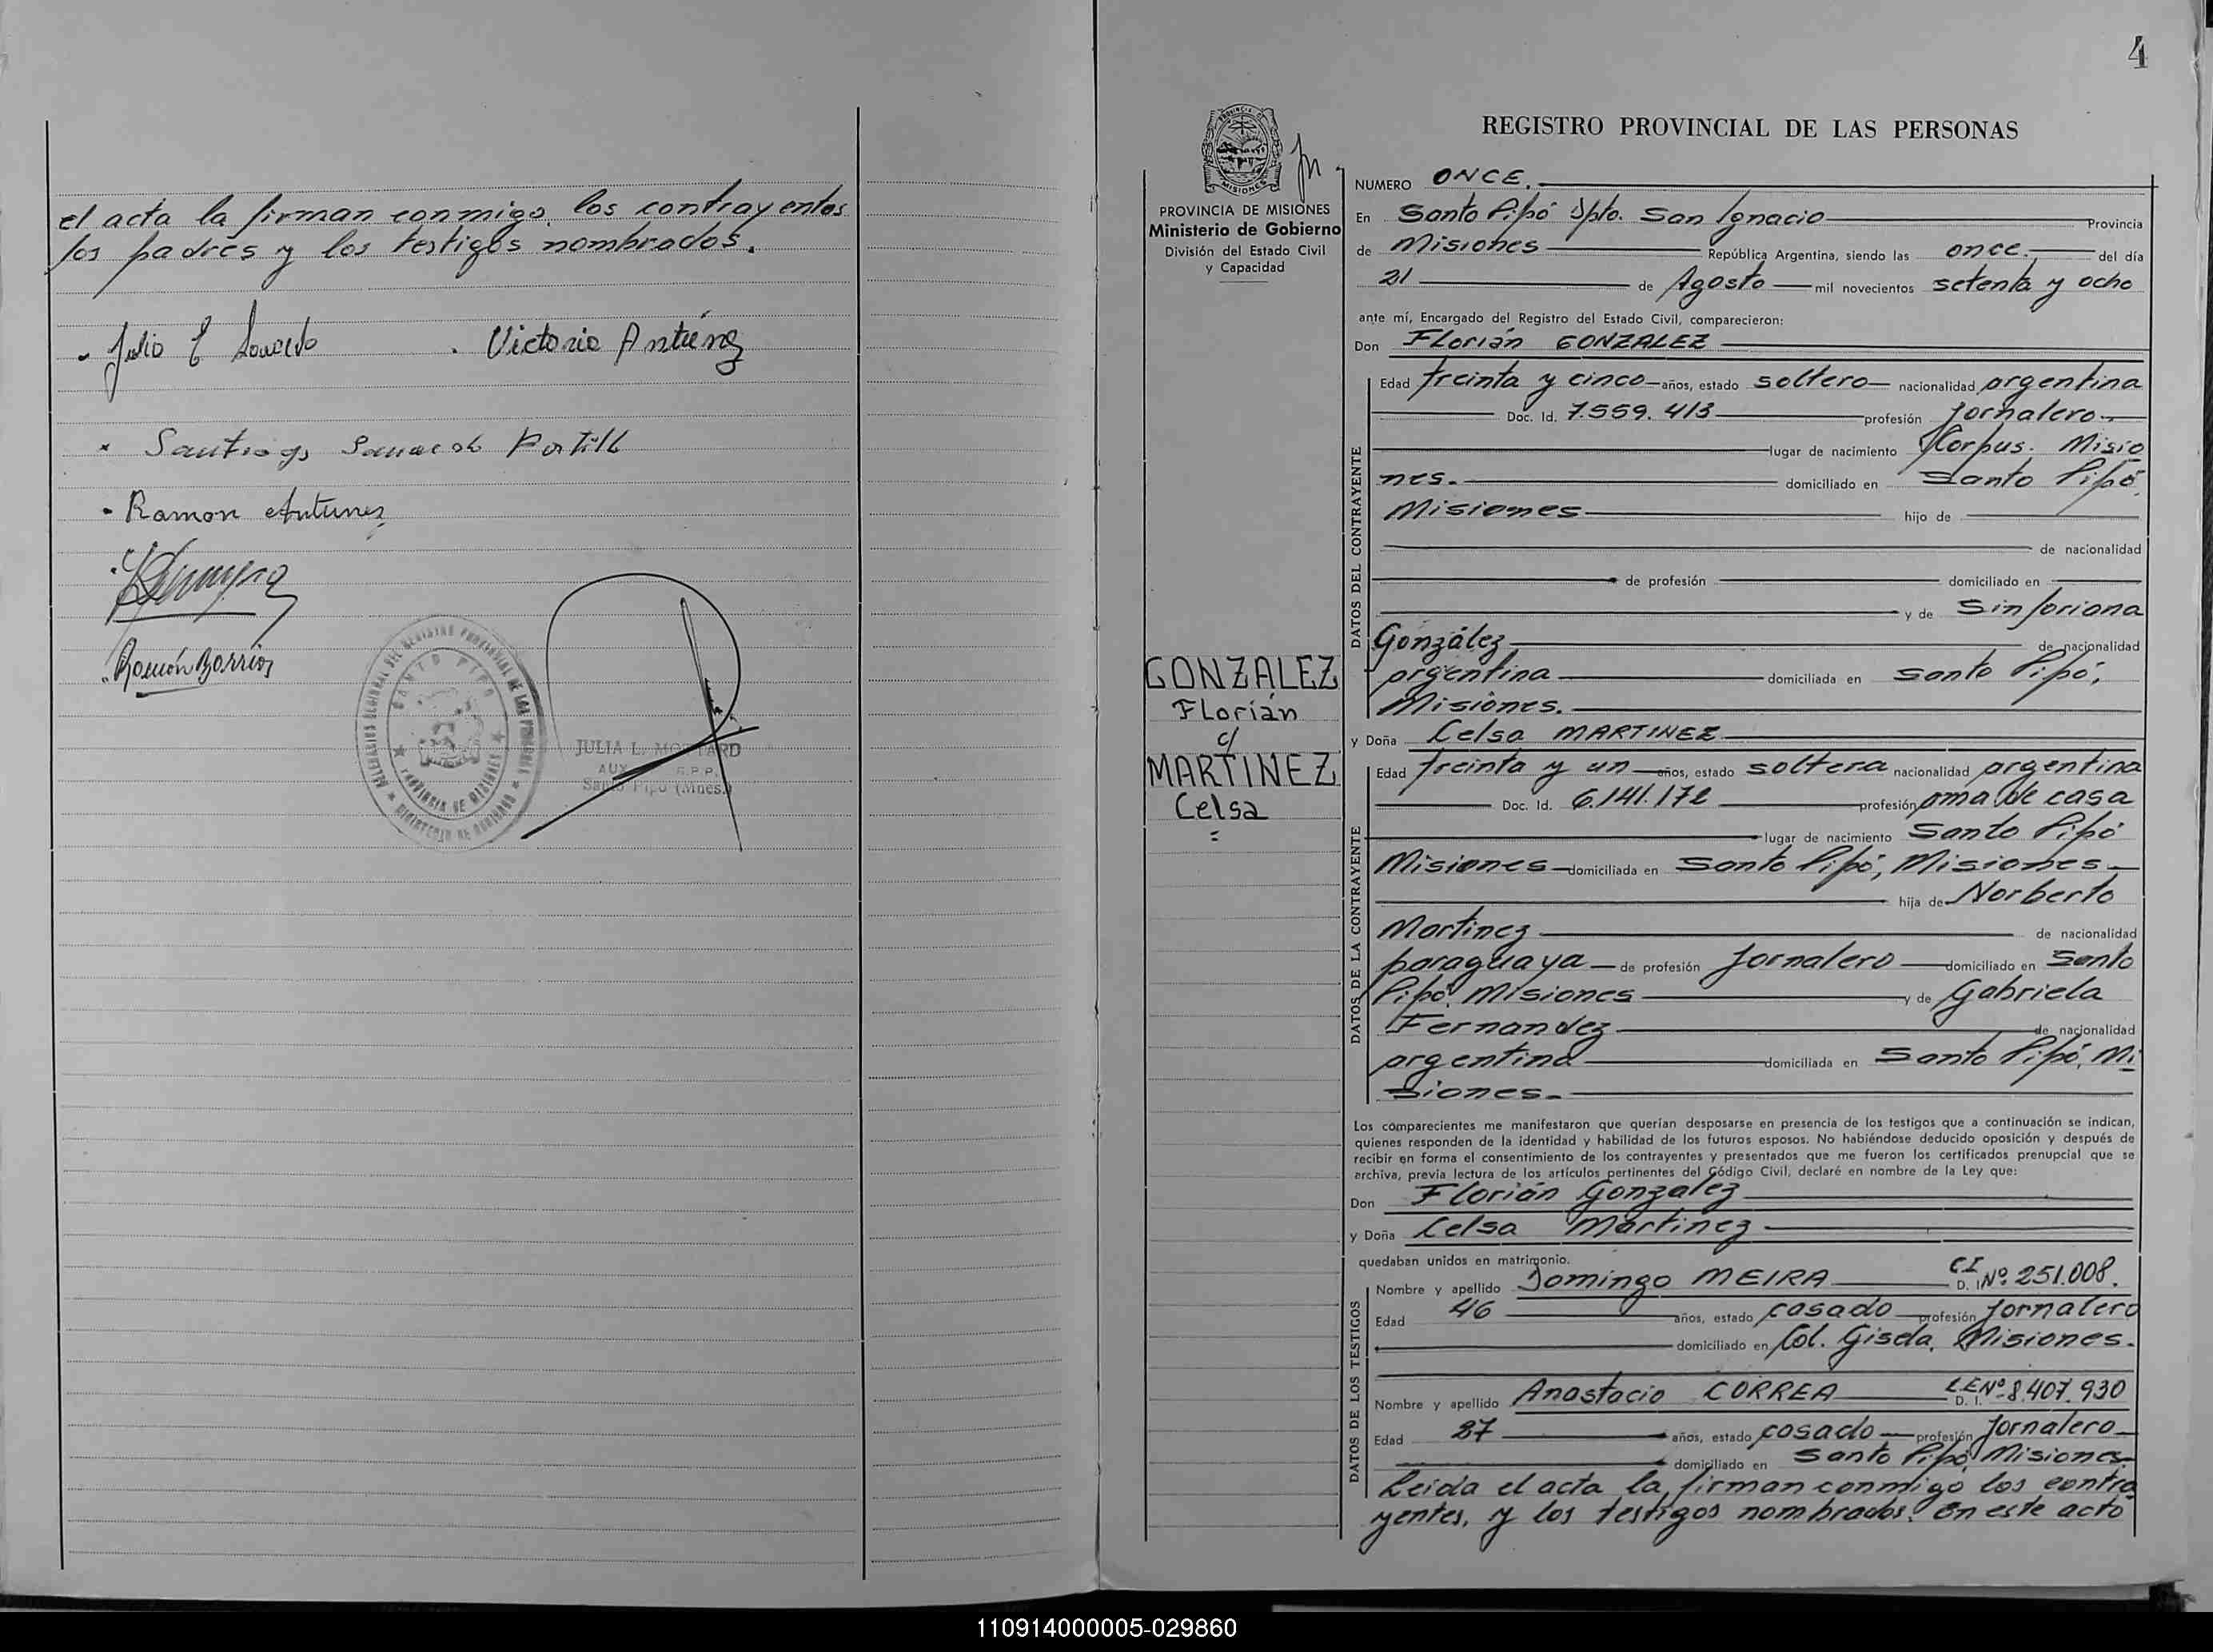 el acta la firman conmigo los contrayentes
los padres y los testigos nombrados.
Julio E
Victoria
Santiago
Ramon Antunez
Ramón Barrios
SANTO PIPO
PROVINCIA DE MISIONES
JULIA L.
AUX. R.P.P.
Santo Pipó (Mnes.)
4
PROVINCIA DE MISIONES
Ministerio de Gobierno
División del Estado Civil
y Capacidad
GONZALEZ
Florián
c/
MARTINEZ
Celsa
=
REGISTRO PROVINCIAL DE LAS PERSONAS
NUMERO ONCE.
En Santo Pipó Dpto. San Ignacio Provincia
de Misiones República Argentina, siendo las once. del día
21 de Agosto mil novecientos setenta y ocho
ante mí, Encargado del Registro del Estado Civil, comparecieron:
Don Florián GONZALEZ
DATOS DEL CONTRAYENTE
Edad treinta y cinco años, estado soltero nacionalidad argentina
Doc. Id. 7.559.413 profesión Jornalero.
lugar de nacimiento Corpus. Misio
nes. domiciliado en Santo Pipó
Misiones hijo de
de nacionalidad
de profesión domiciliado en
y de Sinforiana
González de nacionalidad
argentina domiciliada en Santo Pipó,
Misiones.
y Doña Celsa MARTINEZ
DATOS DE LA CONTRAYENTE
Edad treinta y un años, estado soltera nacionalidad argentina
Doc. Id. 6.141.172 profesión ama de casa
lugar de nacimiento Santo Pipó
Misiones domiciliada en Santo Pipó, Misiones
hija de Norberto
Martinez de nacionalidad
paraguaya de profesión Jornalero domiciliado en Santo
Pipó Misiones y de Gabriela
Fernandez de nacionalidad
argentina domiciliada en Santo Pipó, Mi
siones.
Los comparecientes me manifestaron que querían desposarse en presencia de los testigos que a continuación se indican,
quienes responden de la identidad y habilidad de los futuros esposos. No habiéndose deducido oposición y después de
recibir en forma el consentimiento de los contrayentes y presentados que me fueron los certificados prenupcial que se
archiva, previa lectura de los artículos pertinentes del Código Civil, declaré en nombre de la Ley que:
Don Florián Gonzalez
y Doña Celsa Martinez
quedaban unidos en matrimonio.
DATOS DE LOS TESTIGOS
Nombre y apellido Domingo MEIRA D. I. CI Nº 251.008.
Edad 46 años, estado casado profesión Jornalero
domiciliado en Col. Gisela, Misiones.
Nombre y apellido Anastacio CORREA D. I. L.E Nº 8.407.930
Edad 27 años, estado casado profesión Jornalero
domiciliado en Santo Pipó Misiones
Leida el acta la firman conmigo los contra
yentes, y los testigos nombrados. En este acto
110914000005-029860